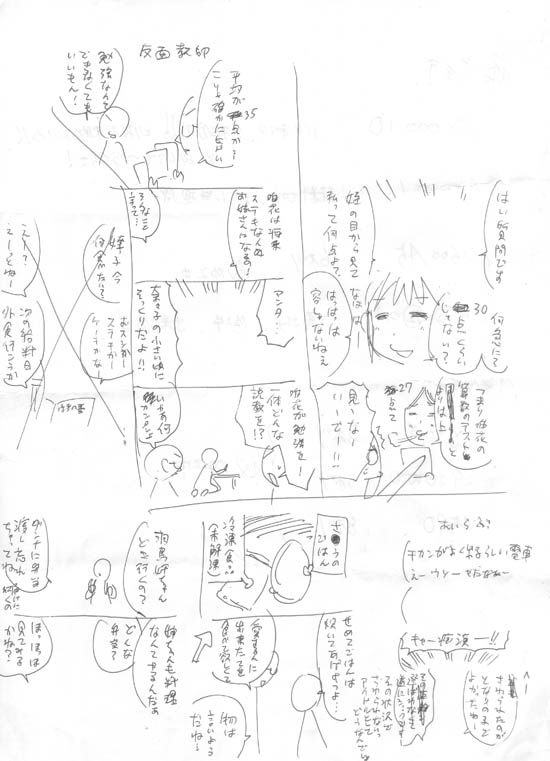 反面教師
はい質問です
姪の目から見て
私って何点よ？
何急に？
30点くらい
じゃない？
なはは
ははは
容しゃないねえ
つまり唯花の
算数のテスト
よりは上
27点て
見んなー
いいーで！！
平均が35点か？
こりゃ確かにひどい
勉強なんて
できなくても
いいもん！
唯花は将来
ステキなんぬ
お嫁さんになる！
そんなこと
言って…
アンタ…
奈々子の小さい頃に
そっくりだよ！！
唯花が勉強を！
一体どんな
説教を！？
いやあ何
カンタンよ
姪子今
何食べたい？
おすしかー
ステーキかー
ケーキかなー
えー！？
えーっとねー
次の給料日
外食行こうか
あいらぶ
チカンがよく出るらしい電車
えーウソーやだなあー
キャー痴漢ー！！
さわられたのが
となりの子で
よかったねー
その状況で
さわられないって
アイドルとして
どうなんだい
さとうの
ごはん
冷凍食品
(未解凍)
羽鳥姉ちゃん
どこ行くの？
ダーナに弁当
渡し忘れ
ちゃってね
届けに
行くの
せめてごはんは
炊いてあげようよ…
愛する人に
出来たてを
食べて欲しくて
物は
言いよう
だね〜
姉ちゃんも料理
なんてするんだぁ
どんな
弁当？
ほっほっほ
見てみる
かね？